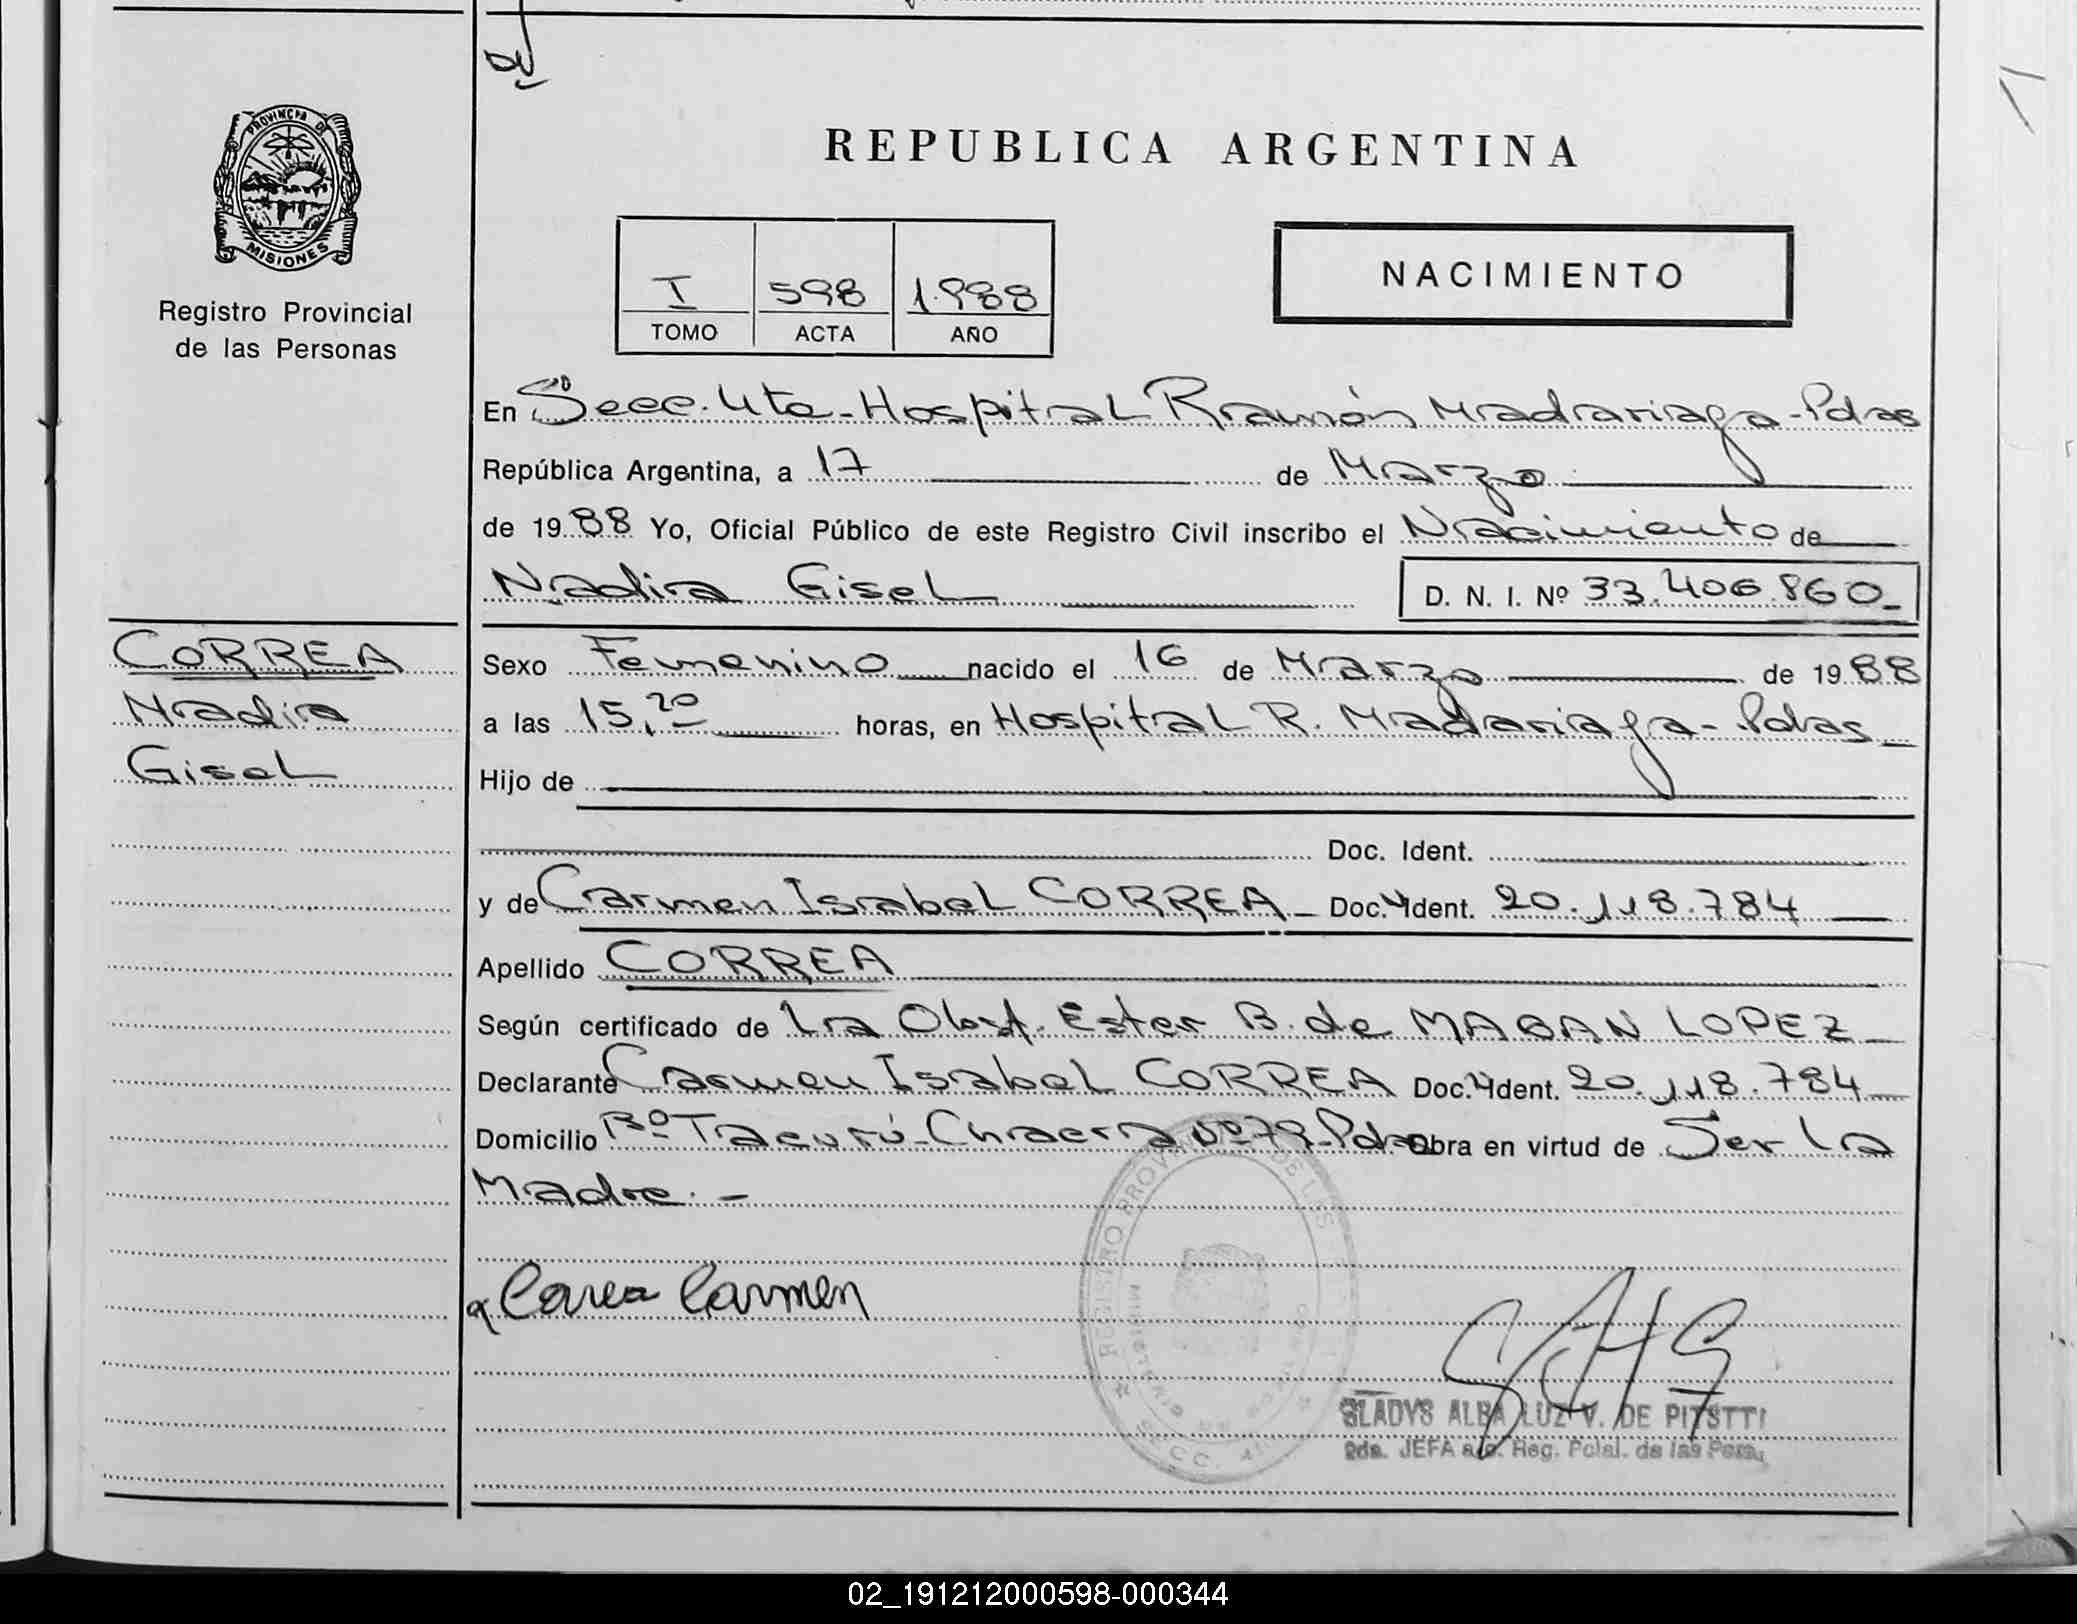 REPUBLICA ARGENTINA
PROVINCIA DE
MISIONES
Registro Provincial
de las Personas
I 598 1.988
TOMO ACTA AÑO
NACIMIENTO
En Secc. 4ta - Hospital Ramón Madariaga - Pdas
República Argentina, a 17 de Marzo
de 19 88 Yo, Oficial Público de este Registro Civil inscribo el Nacimiento de
Nadia Gisel D. N. I. Nº 33.406.860
CORREA
Nadia
Gisel
Sexo Femenino nacido el 16 de Marzo de 19 88
a las 15,20 horas, en Hospital R. Madariaga - Pdas
Hijo de
Doc. Ident.
y de Carmen Isabel CORREA - Doc. Ident. 20.118.784
Apellido CORREA
Según certificado de La Obst. Ester B. de MABAN LOPEZ
Declarante Carmen Isabel CORREA Doc. Ident. 20.118.784
Domicilio Bº Tacurú - Chacra Nº 79 - Pdas Obra en virtud de Ser la
Madre. -
Correa Carmen
REGISTRO PROVINCIAL DE LAS
SECC.
GLADYS ALBA LUZ V. DE
2da. JEFA a/c. Reg. Pcial. de las Pers.
02_191212000598-000344